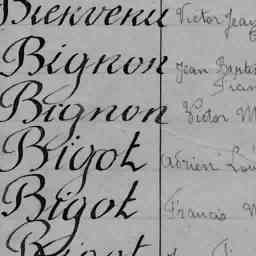 Bienvenu Victor Jean
Bignon Jean Bapti
Fran
Bignon Victor M
Bigot Adrien Lou
Bigot Francis M
Bigot